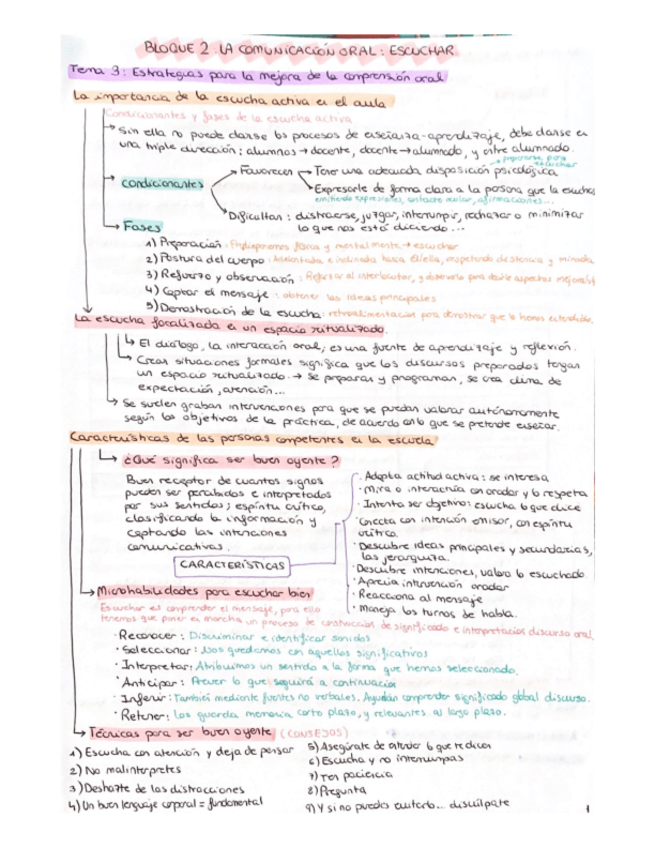 BLOQUE 2. LA COMUNICACIÓN ORAL: ESCUCHAR.
Tema 3: Estrategias para la mejora de la comprensión oral
La importancia de la escucha activa en el aula
Condicionantes y fases de la escucha activa
Sin ella no puede darse los procesos de enseñanza-aprendizaje, debe darse en
una triple dirección: alumnos → docente, docente → alumnado, y entre alumnado.
prepararse para
escuchar
Condicionantes
Favorecen → Tener una adecuada disposición psicológica
Expresarle de forma clara a la persona que la escuchas
emitiendo expresiones, contacto ocular, afirmaciones...
Dificultan: distraerse, juzgar, interrumpir, rechazar o minimizar
lo que nos está diciendo...
Fases
1) Preparación: física y mental mente → escuchar
2) Postura del cuerpo: e inclinada hacia él/ella, respetando distancia y mirada
3) Refuerzo y observación: Reforzar al interlocutor, y observarlo para decirle aspectos
4) Captar el mensaje: obtener las ideas principales
5) Demostración de la escucha: retroalimentación para demostrar que lo hemos entendido.
La escucha focalizada en un espacio ritualizado.
El diálogo, la interacción oral, es una fuente de aprendizaje y reflexión.
Crear situaciones formales significa que los discursos preparados tengan
un espacio ritualizado. → se preparan y programan, se crea clima de
expectación, atención...
Se suelen graban intervenciones para que se puedan valorar autónonamente
según los objetivos de la práctica, de acuerdo con lo que se pretende enseñar.
Características de las personas competentes en la escuela
¿Qué significa ser buen oyente?
Buen receptor de cuantos signos
pueden ser percibidos e interpretados
por sus sentidos; espíritu crítico,
clasificando la información y
captando las intenciones
comunicativas.
CARACTERÍSTICAS
· Adopta actitud activa: se interesa
· Mira o interactúa con orador y lo respeta
· Intenta ser objetivo: escucha lo que dice
· Conecta con intención emisor, con espíritu
crítico.
· Descubre ideas principales y secundarias,
las jerarquiza.
· Descubre intenciones, valora lo escuchado
· Aprecia intervención orador
· Reacciona al mensaje
· Maneja los turnos de habla.
Microhabilidades para escuchar bien
Escuchar es comprender el mensaje, para ello
tenemos que poner en marcha un proceso de construcción de significado e interpretación discurso oral.
· Reconocer: Discriminar e identificar sonidos
· Seleccionar: Nos quedamos con aquellos significativos
· Interpretar: Atribuimos un sentido a la forma que hemos seleccionado.
· Anticipar: Prever lo que seguirá a continuación
· Inferir: También mediante fuentes no verbales. Ayudan comprender significado global discurso.
· Retener: Los guarda memoria corto plazo, y relevantes al largo plazo.
Técnicas para ser buen oyente (CONSEJOS)
1) Escucha con atención y deja de pensar
2) No malinterpretes
3) Deshazte de las distracciones
4) Un buen lenguaje corporal = fundamental
5) Asegúrate de entender lo que te dicen
6) Escucha y no interrumpas
7) Ten paciencia
8) Pregunta
9) Y si no puedes evitarlo... discúlpate
1